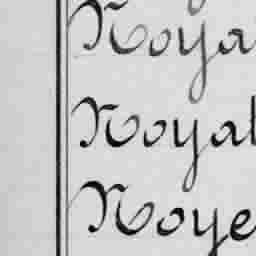 Noya
Noyal
Noye